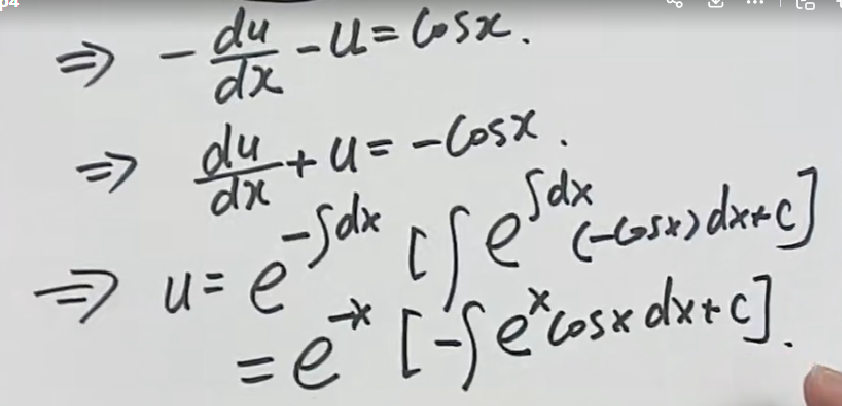 p4
⇒ -du/dx - u = cosx.
⇒ du/dx + u = -cosx.
⇒ u = e^{-∫dx} [∫e^{∫dx} (-cosx)dx+C]
= e^{-x} [-∫e^x cosx dx+C].